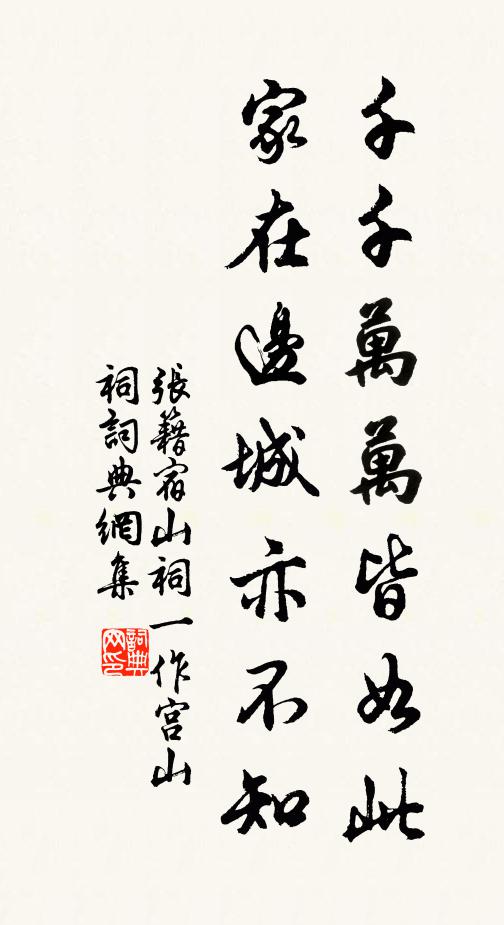 千千萬萬皆如此
家在邊城亦不知
張籍宿山祠一作宫山
祠詞典網集
詞典
网印